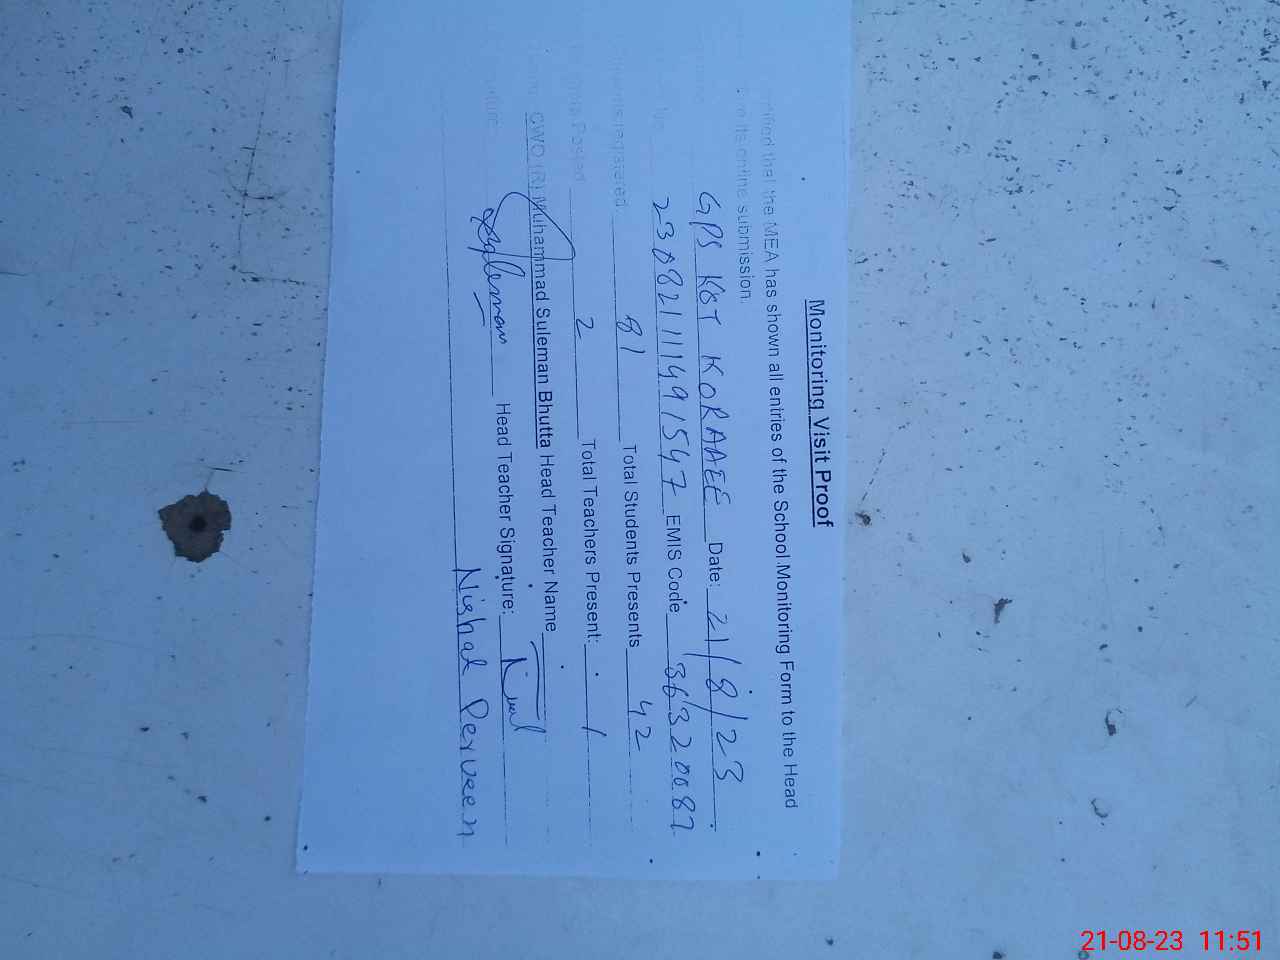 Monitoring Visit Proof
that the MEA has shown all entries of the School Monitoring Form to the Head
its entire submission.
GPS KOT KORAAEE Date: 21/8/23
No. 23082111491547 EMIS Code 36320087
81 Total Students Presents 42
Posted 2 Total Teachers Present: 1
CWO (R) Muhammad Suleman Bhutta Head Teacher Name
Head Teacher Signature:
Nighat Perveen
21-08-23 11:51